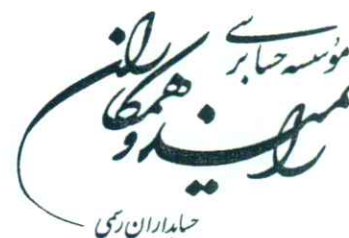 موسسه حسابرسی
رامیند و همکاران
حسابداران رسمی